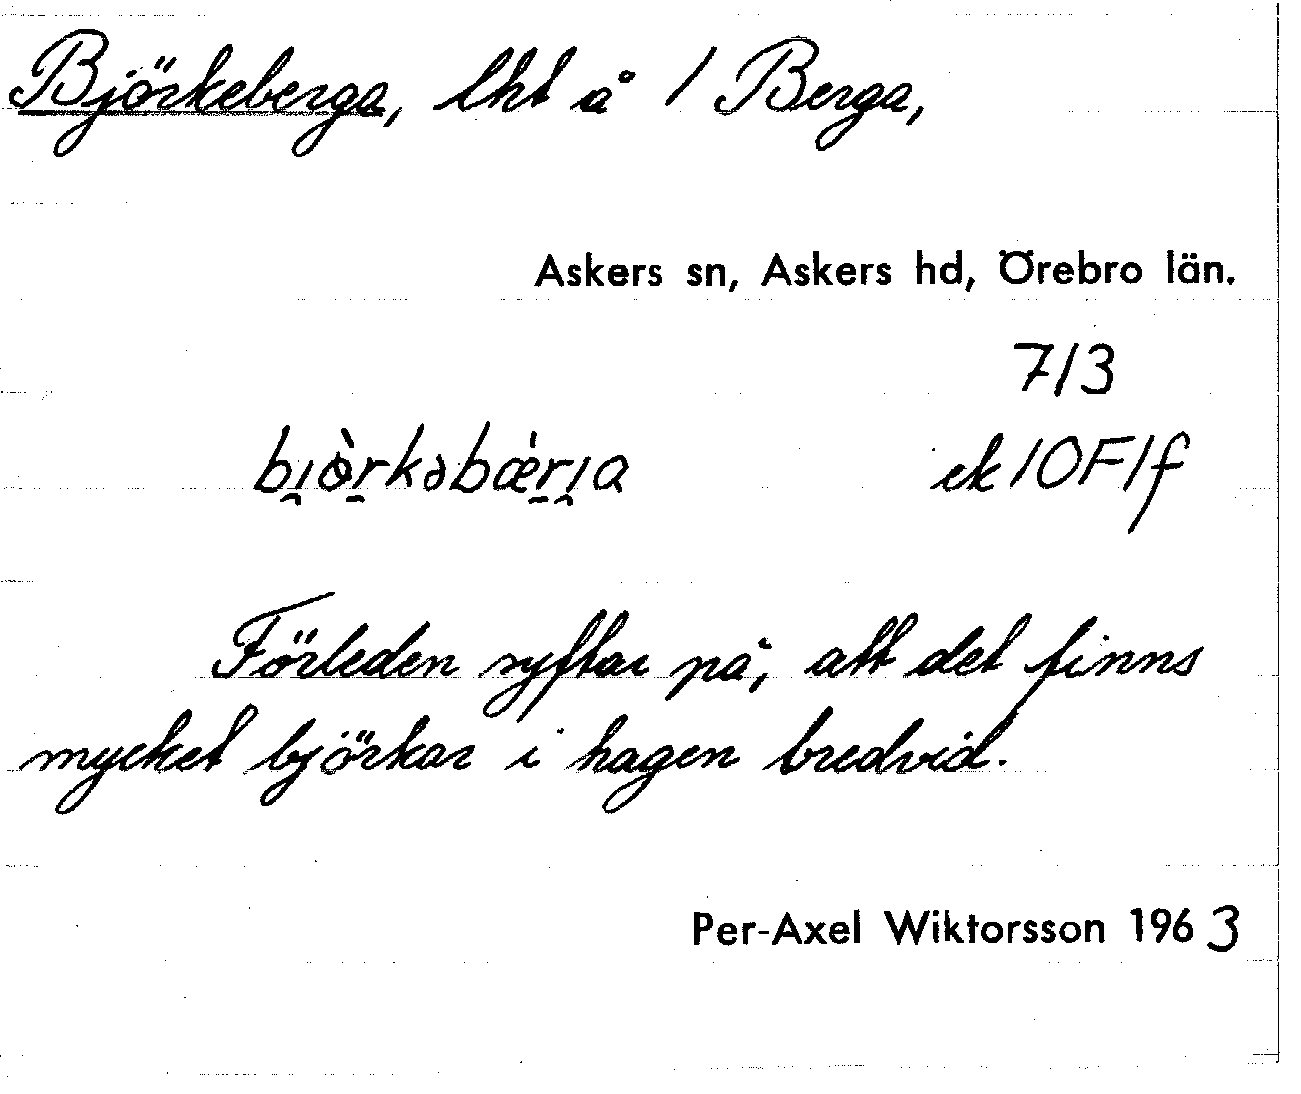 Björkeberga, lht å 1 Berga,
Askers sn, Askers hd, Örebro län.
7/3
bı̯ò̤r̠kəbæ̀r̠ı̯a ek 10F1f
Förleden syftar på, att det finns
mycket björkar i hagen bredvid.
Per-Axel Wiktorsson 1963